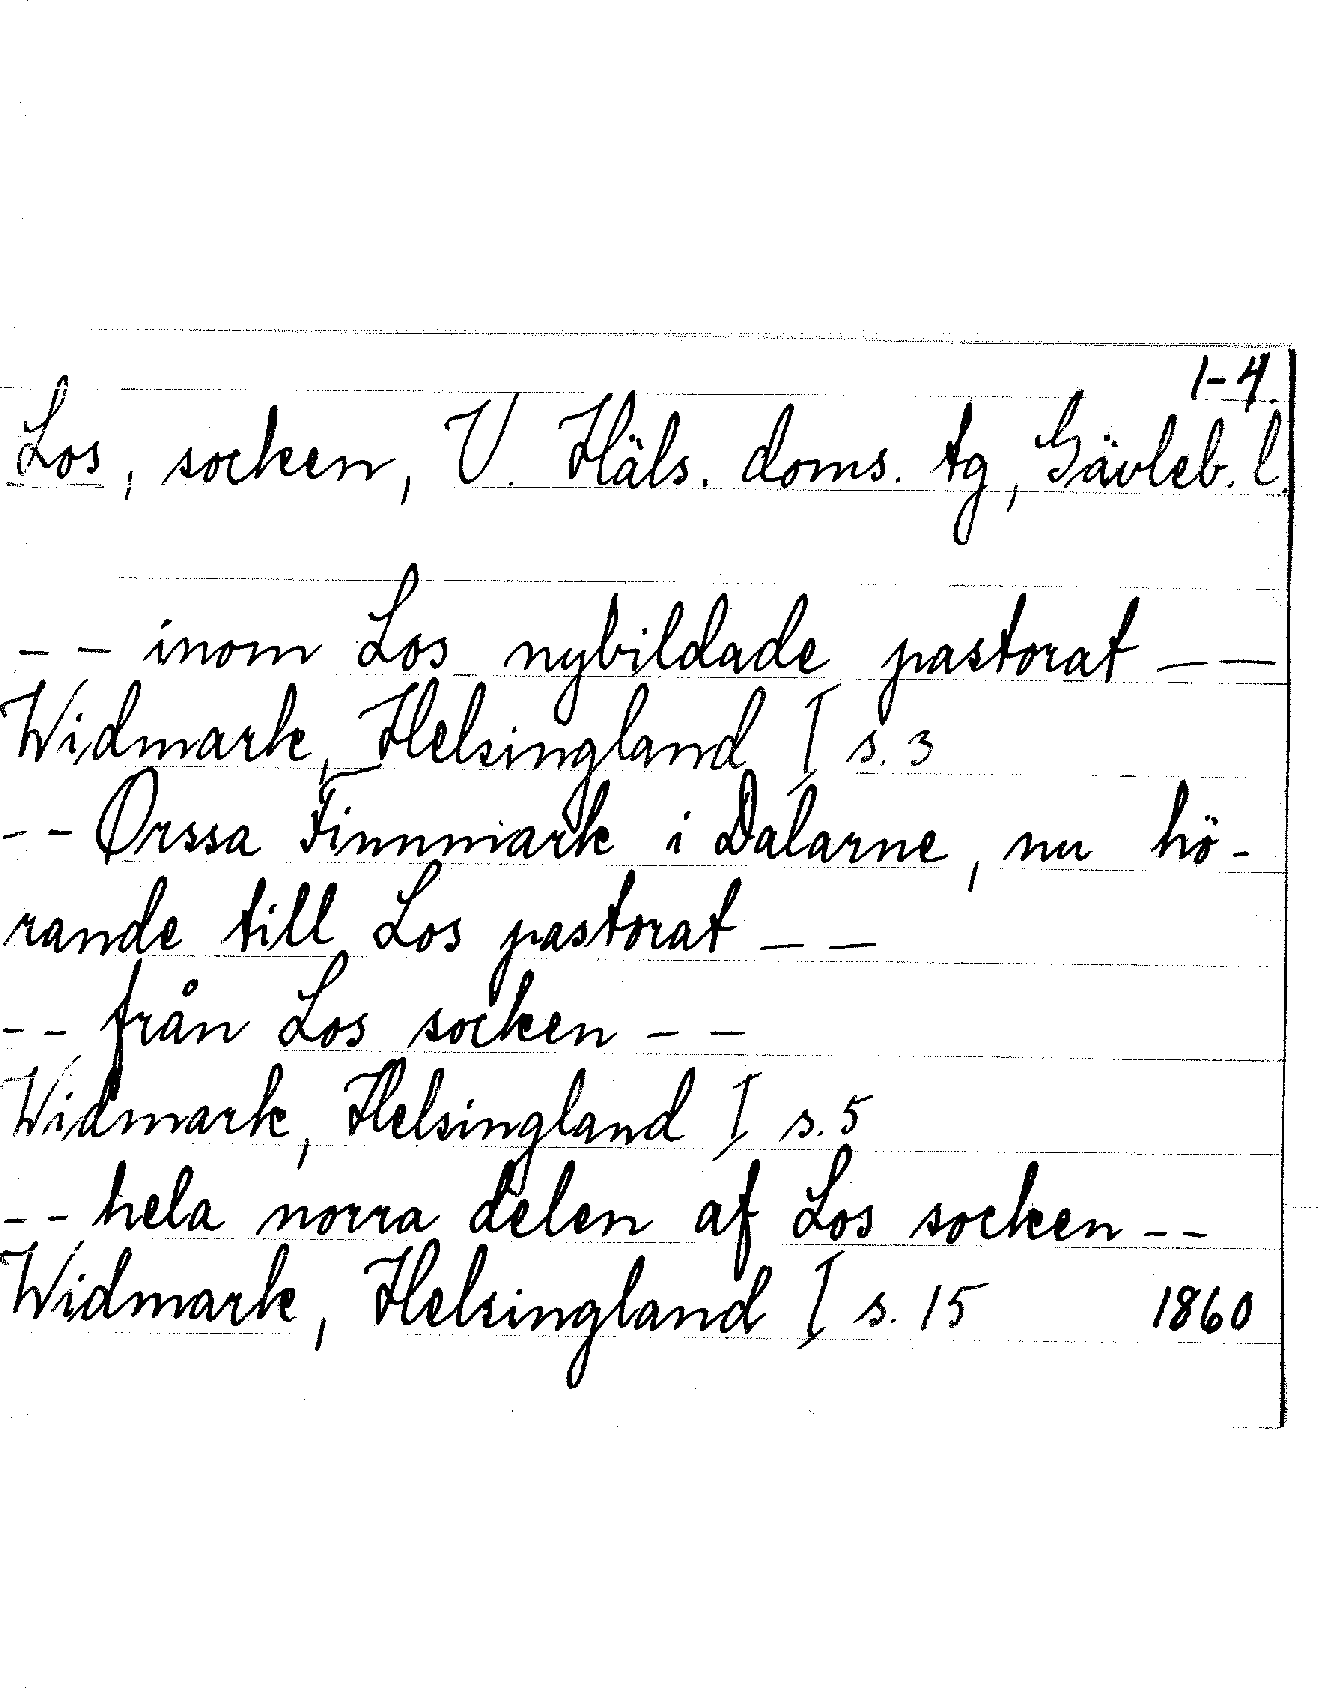 1-4.
Los, socken, V. Häls. doms. tg, Gävleb. l.
-- inom Los nybildade pastorat --
Widmark, Helsingland I s. 3
-- Orssa Finnmark i Dalarne, nu hö-
rande till Los pastorat --
-- från Los socken --
Widmark, Helsingland I s. 5
-- hela norra delen af Los socken --
Widmark, Helsingland I s. 15 1860